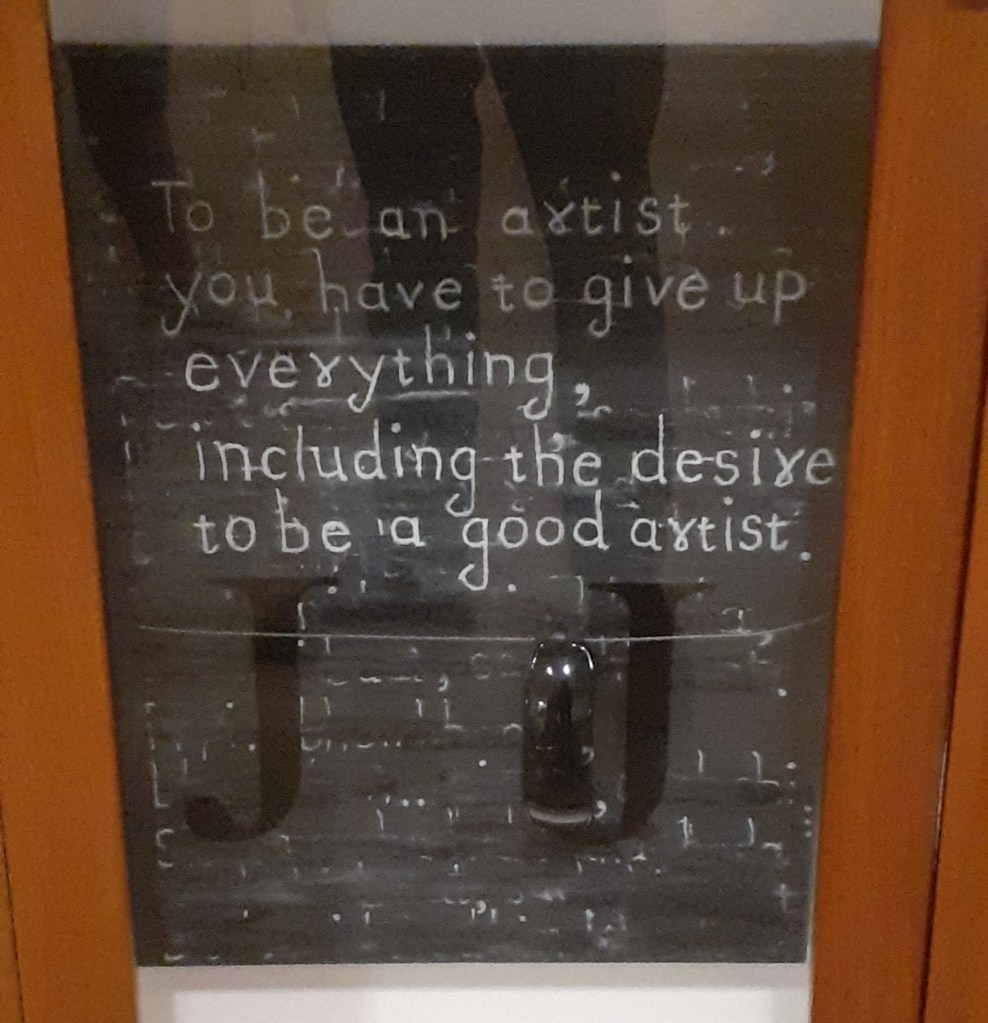 To be an artist.
you have to give up
everything,
including the desire
to be a good artist.
J J